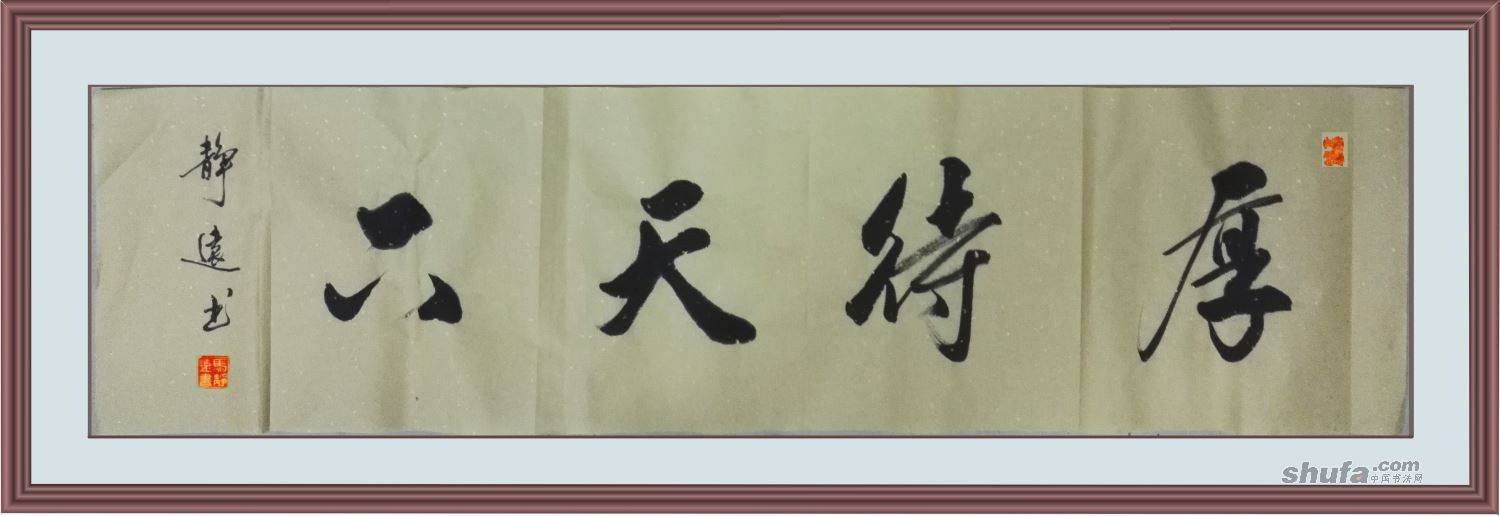 厚待天只
静遠书
馬静遠書
shufa.com
中国书法网